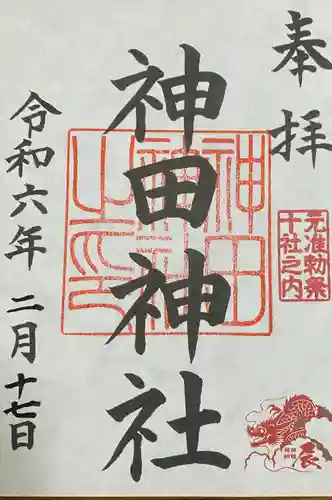 奉拝
元准勅祭
十社之内
辰
神田神社
神田
神社
之印
令和六年 二月 十七日